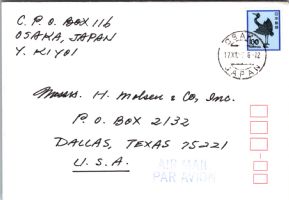 C. P. O. BOX 116
OSAKA, JAPAN
Y. KIYOI
100
OSAKA
JAPAN
Messrs. H. Molsen & Co, Inc.
P. O. BOX 2132
DALLAS, TEXAS 75221
U. S. A.
AIR MAIL
PAR AVION